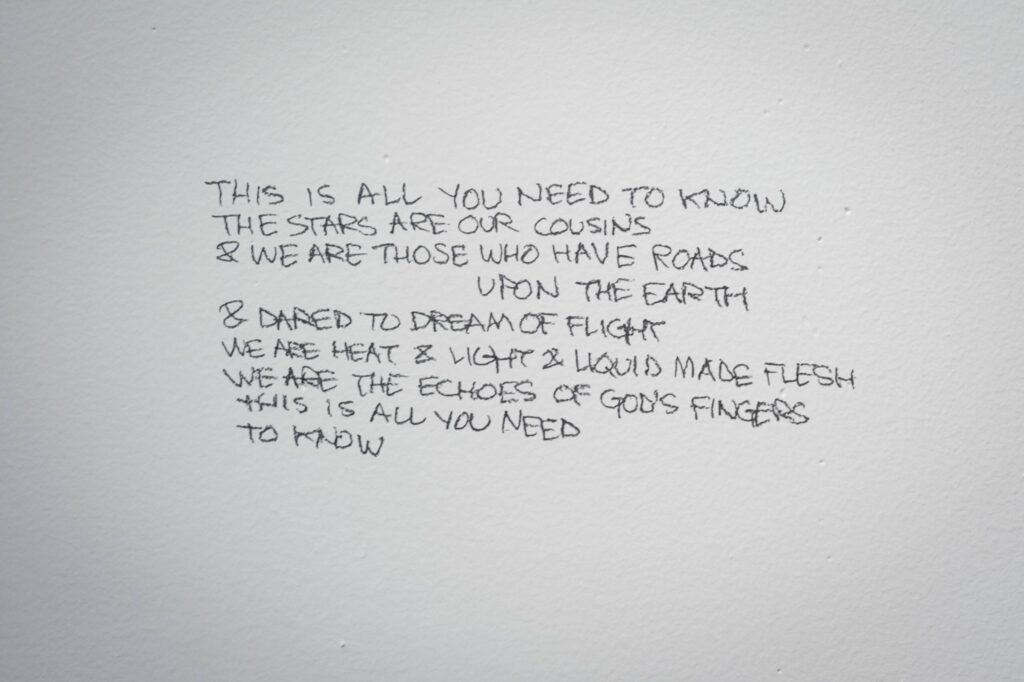 THIS IS ALL YOU NEED TO KNOW
THE STARS ARE OUR COUSINS
& WE ARE THOSE WHO HAVE ROADS
UPON THE EARTH
& DARED TO DREAM OF FLIGHT
WE ARE HEAT & LIGHT & LIQUID MADE FLESH
WE ARE THE ECHOES OF GOD'S FINGERS
THIS IS ALL YOU NEED
TO KNOW